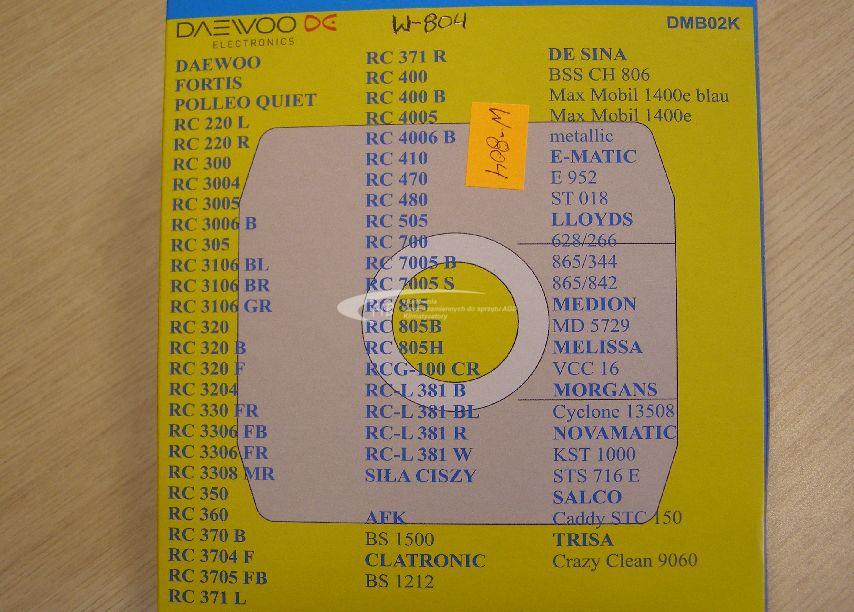 DAEWOO DE
ELECTRONICS
W-804
DMB02K
DAEWOO
FORTIS
POLLEO QUIET
RC 220 L
RC 220 R
RC 300
RC 3004
RC 3005
RC 3006 B
RC 305
RC 3106 BL
RC 3106 BR
RC 3106 GR
RC 320
RC 320 B
RC 320 F
RC 3204
RC 330 FR
RC 3306 FB
RC 3306 FR
RC 3308 MR
RC 350
RC 360
RC 370 B
RC 3704 F
RC 3705 FB
RC 371 L
RC 371 R
RC 400
RC 400 B
RC 4005
RC 4006 B
RC 410
RC 470
RC 480
RC 505
RC 700
RC 7005 B
RC 7005 S
RC 805
RC 805B
RC 805H
RCG-100 CR
RC-L 381 B
RC-L 381 BL
RC-L 381 R
RC-L 381 W
SIŁA CISZY
AFK
BS 1500
CLATRONIC
BS 1212
W-804
DE SINA
BSS CH 806
Max Mobil 1400e blau
Max Mobil 1400e
metallic
E-MATIC
E 952
ST 018
LLOYDS
628/266
865/344
865/842
MEDION
MD 5729
MELISSA
VCC 16
MORGANS
Cyclone 13508
NOVAMATIC
KST 1000
STS 716 E
SALCO
Caddy STC 150
TRISA
Crazy Clean 9060
zamiennych do sprzętu AGD
Klimatyzatory